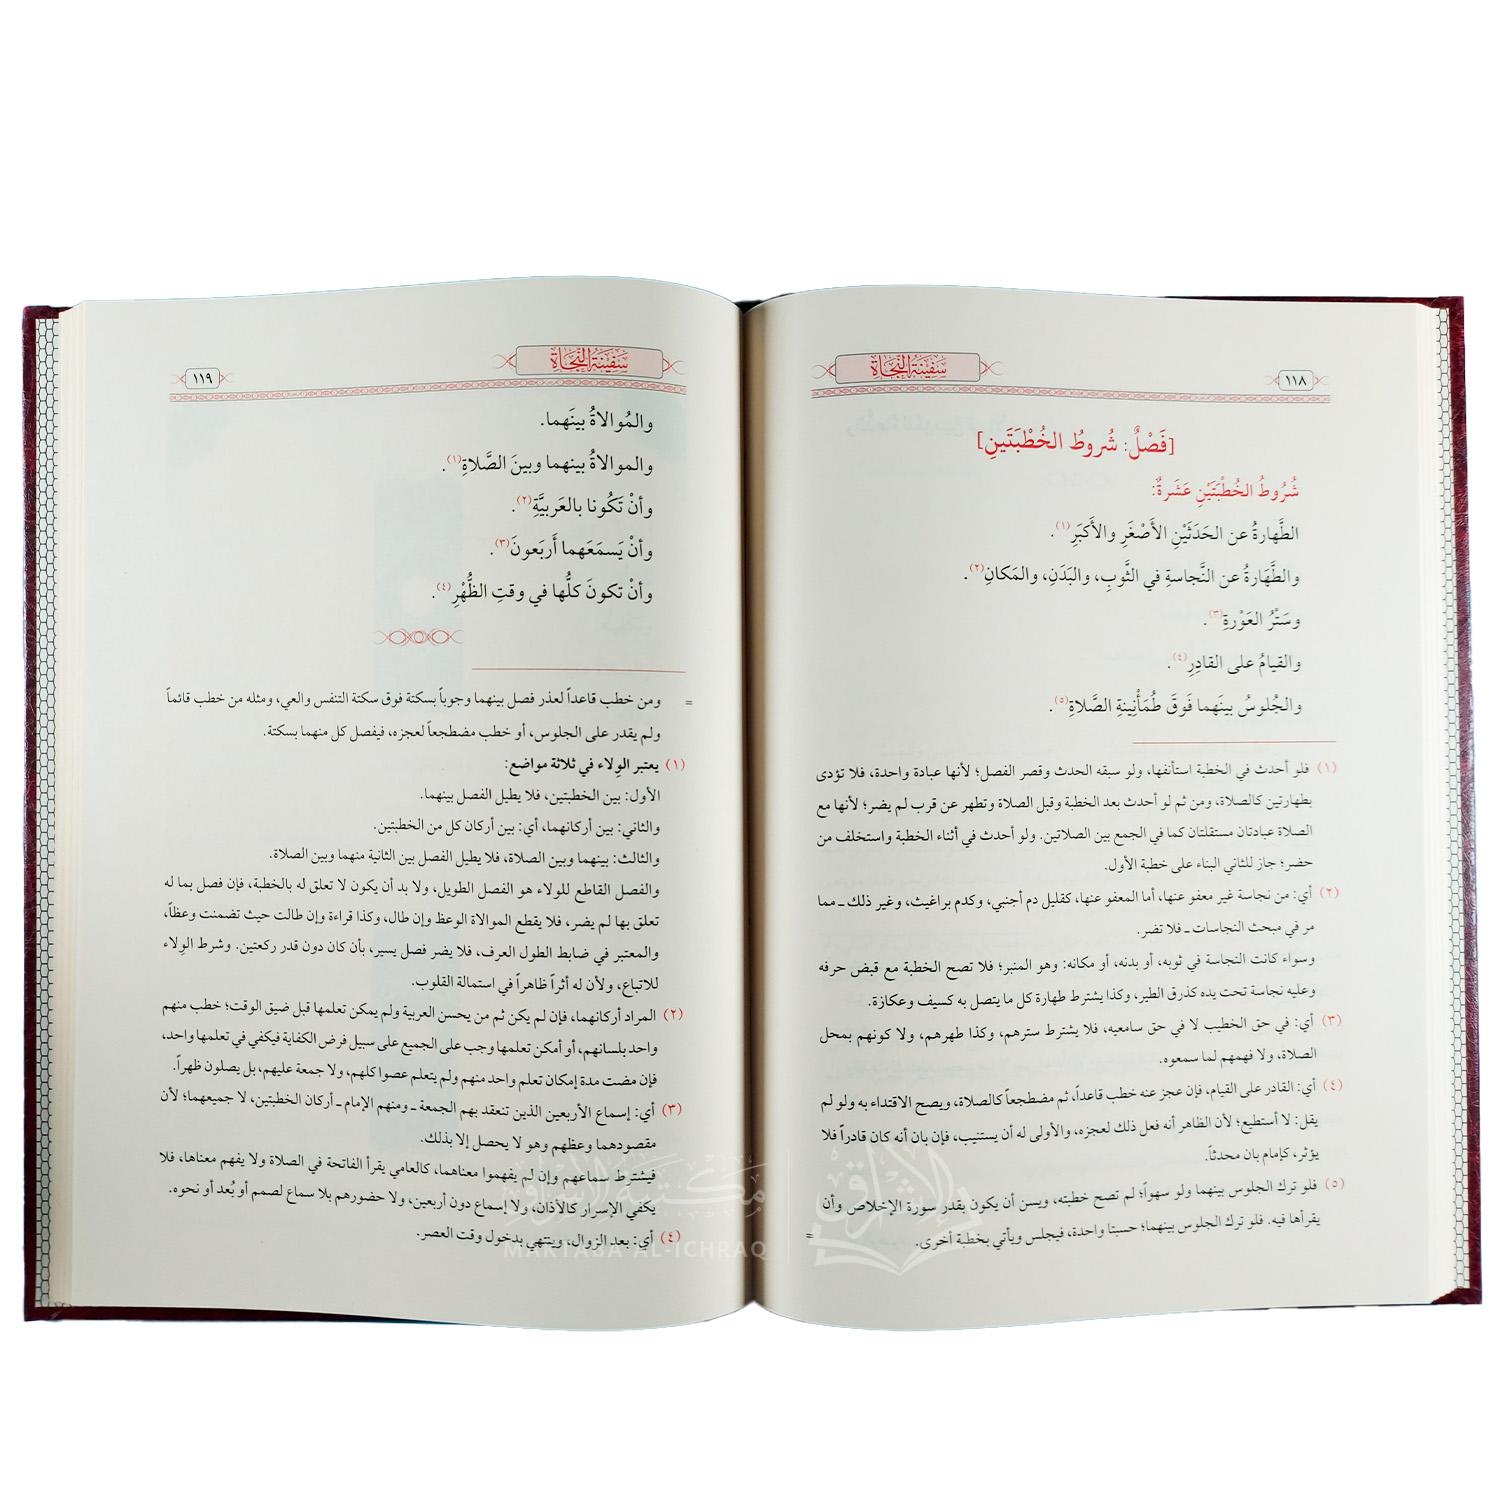 سَفِينَةُ النَّجَاةِ
١١٨
[فَصْلٌ: شُروطُ الخُطْبَتَينِ]
شُرُوطُ الخُطْبَتَيْنِ عَشَرَةٌ:
الطَّهارةُ عن الحَدَثَيْنِ الأَصْغَرِ والأَكبَرِ(١).
والطَّهَارةُ عن النَّجاسةِ في الثَّوبِ، والبَدَنِ، والمَكانِ(٢).
وسَتْرُ العَوْرةِ(٣).
والقيامُ على القادِرِ(٤).
والجُلوسُ بينَهما فَوقَ طُمَأْنِينةِ الصَّلاةِ(٥).
(١) فلو أحدث في الخطبة استأنفها، ولو سبقه الحدث وقصر الفصل؛ لأنها عبادة واحدة، فلا تؤدى
بطهارتين كالصلاة، ومن ثم لو أحدث بعد الخطبة وقبل الصلاة وتطهر عن قرب لم يضر؛ لأنها مع
الصلاة عبادتان مستقلتان كما في الجمع بين الصلاتين. ولو أحدث في أثناء الخطبة واستخلف من
حضر؛ جاز للثاني البناء على خطبة الأول.
(٢) أي: من نجاسة غير معفو عنها، أما المعفو عنها، كقليل دم أجنبي، وكدم براغيث، وغير ذلك ـ مما
مر في مبحث النجاسات ـ فلا تضر.
وسواء كانت النجاسة في ثوبه، أو بدنه، أو مكانه: وهو المنبر؛ فلا تصح الخطبة مع قبض حرفه
وعليه نجاسة تحت يده كذرق الطير، وكذا يشترط طهارة كل ما يتصل به كسيف وعكازة.
(٣) أي: في حق الخطيب لا في حق سامعيه، فلا يشترط سترهم، وكذا طهرهم، ولا كونهم بمحل
الصلاة، ولا فهمهم لما سمعوه.
(٤) أي: القادر على القيام، فإن عجز عنه خطب قاعداً، ثم مضطجعاً كالصلاة، ويصح الاقتداء به ولو لم
يقل: لا أستطيع؛ لأن الظاهر أنه فعل ذلك لعجزه، والأولى له أن يستنيب، فإن بان أنه كان قادراً فلا
يؤثر، كإمام بان محدثاً.
(٥) فلو ترك الجلوس بينهما ولو سهواً؛ لم تصح خطبته، ويسن أن يكون بقدر سورة الإخلاص وأن
يقرأها فيه. فلو ترك الجلوس بينهما؛ حسبتا واحدة، فيجلس ويأتي بخطبة أخرى. =
سَفِينَةُ النَّجَاةِ
١١٩
والمُوالاةُ بينَهما.
والموالاةُ بينهما وبينَ الصَّلاةِ(١).
وأنْ تَكُونا بالعَربيَّةِ(٢).
وأنْ يَسمَعَهما أَربَعونَ(٣).
وأنْ تكونَ كلُّها في وقتِ الظُّهْرِ(٤).
= ومن خطب قاعداً لعذر فصل بينهما وجوباً بسكتة فوق سكتة التنفس والعي، ومثله من خطب قائماً
ولم يقدر على الجلوس، أو خطب مضطجعاً لعجزه، فيفصل كل منهما بسكتة.
(١) يعتبر الولاء في ثلاثة مواضع:
الأول: بين الخطبتين، فلا يطيل الفصل بينهما.
والثاني: بين أركانهما، أي: بين أركان كل من الخطبتين.
والثالث: بينهما وبين الصلاة، فلا يطيل الفصل بين الثانية منهما وبين الصلاة.
والفصل القاطع للولاء هو الفصل الطويل، ولا بد أن يكون لا تعلق له بالخطبة، فإن فصل بما له
تعلق بها لم يضر، فلا يقطع الموالاة الوعظ وإن طال، وكذا قراءة وإن طالت حيث تضمنت وعظاً،
والمعتبر في ضابط الطول العرف، فلا يضر فصل يسير، بأن كان دون قدر ركعتين. وشرط الولاء
للاتباع، ولأن له أثراً ظاهراً في استمالة القلوب.
(٢) المراد أركانهما، فإن لم يكن ثم من يحسن العربية ولم يمكن تعلمها قبل ضيق الوقت؛ خطب منهم
واحد بلسانهم، أو أمكن تعلمها وجب على الجميع على سبيل فرض الكفاية فيكفي في تعلمها واحد،
فإن مضت مدة إمكان تعلم واحد منهم ولم يتعلم عصوا كلهم، ولا جمعة عليهم، بل يصلون ظهراً.
(٣) أي: إسماع الأربعين الذين تنعقد بهم الجمعة ـ ومنهم الإمام ـ أركان الخطبتين، لا جميعهما؛ لأن
مقصودهما وعظهم وهو لا يحصل إلا بذلك.
فيشترط سماعهم وإن لم يفهموا معناهما، كالعامي يقرأ الفاتحة في الصلاة ولا يفهم معناها، فلا
يكفي الإسرار كالأذان، ولا إسماع دون أربعين، ولا حضورهم بلا سماع لصمم أو بُعد أو نحوه.
(٤) أي: بعد الزوال، وينتهي بدخول وقت العصر.
مكتبة الإشراق
الإشراق
MAKTABA AL-ICHRAQ